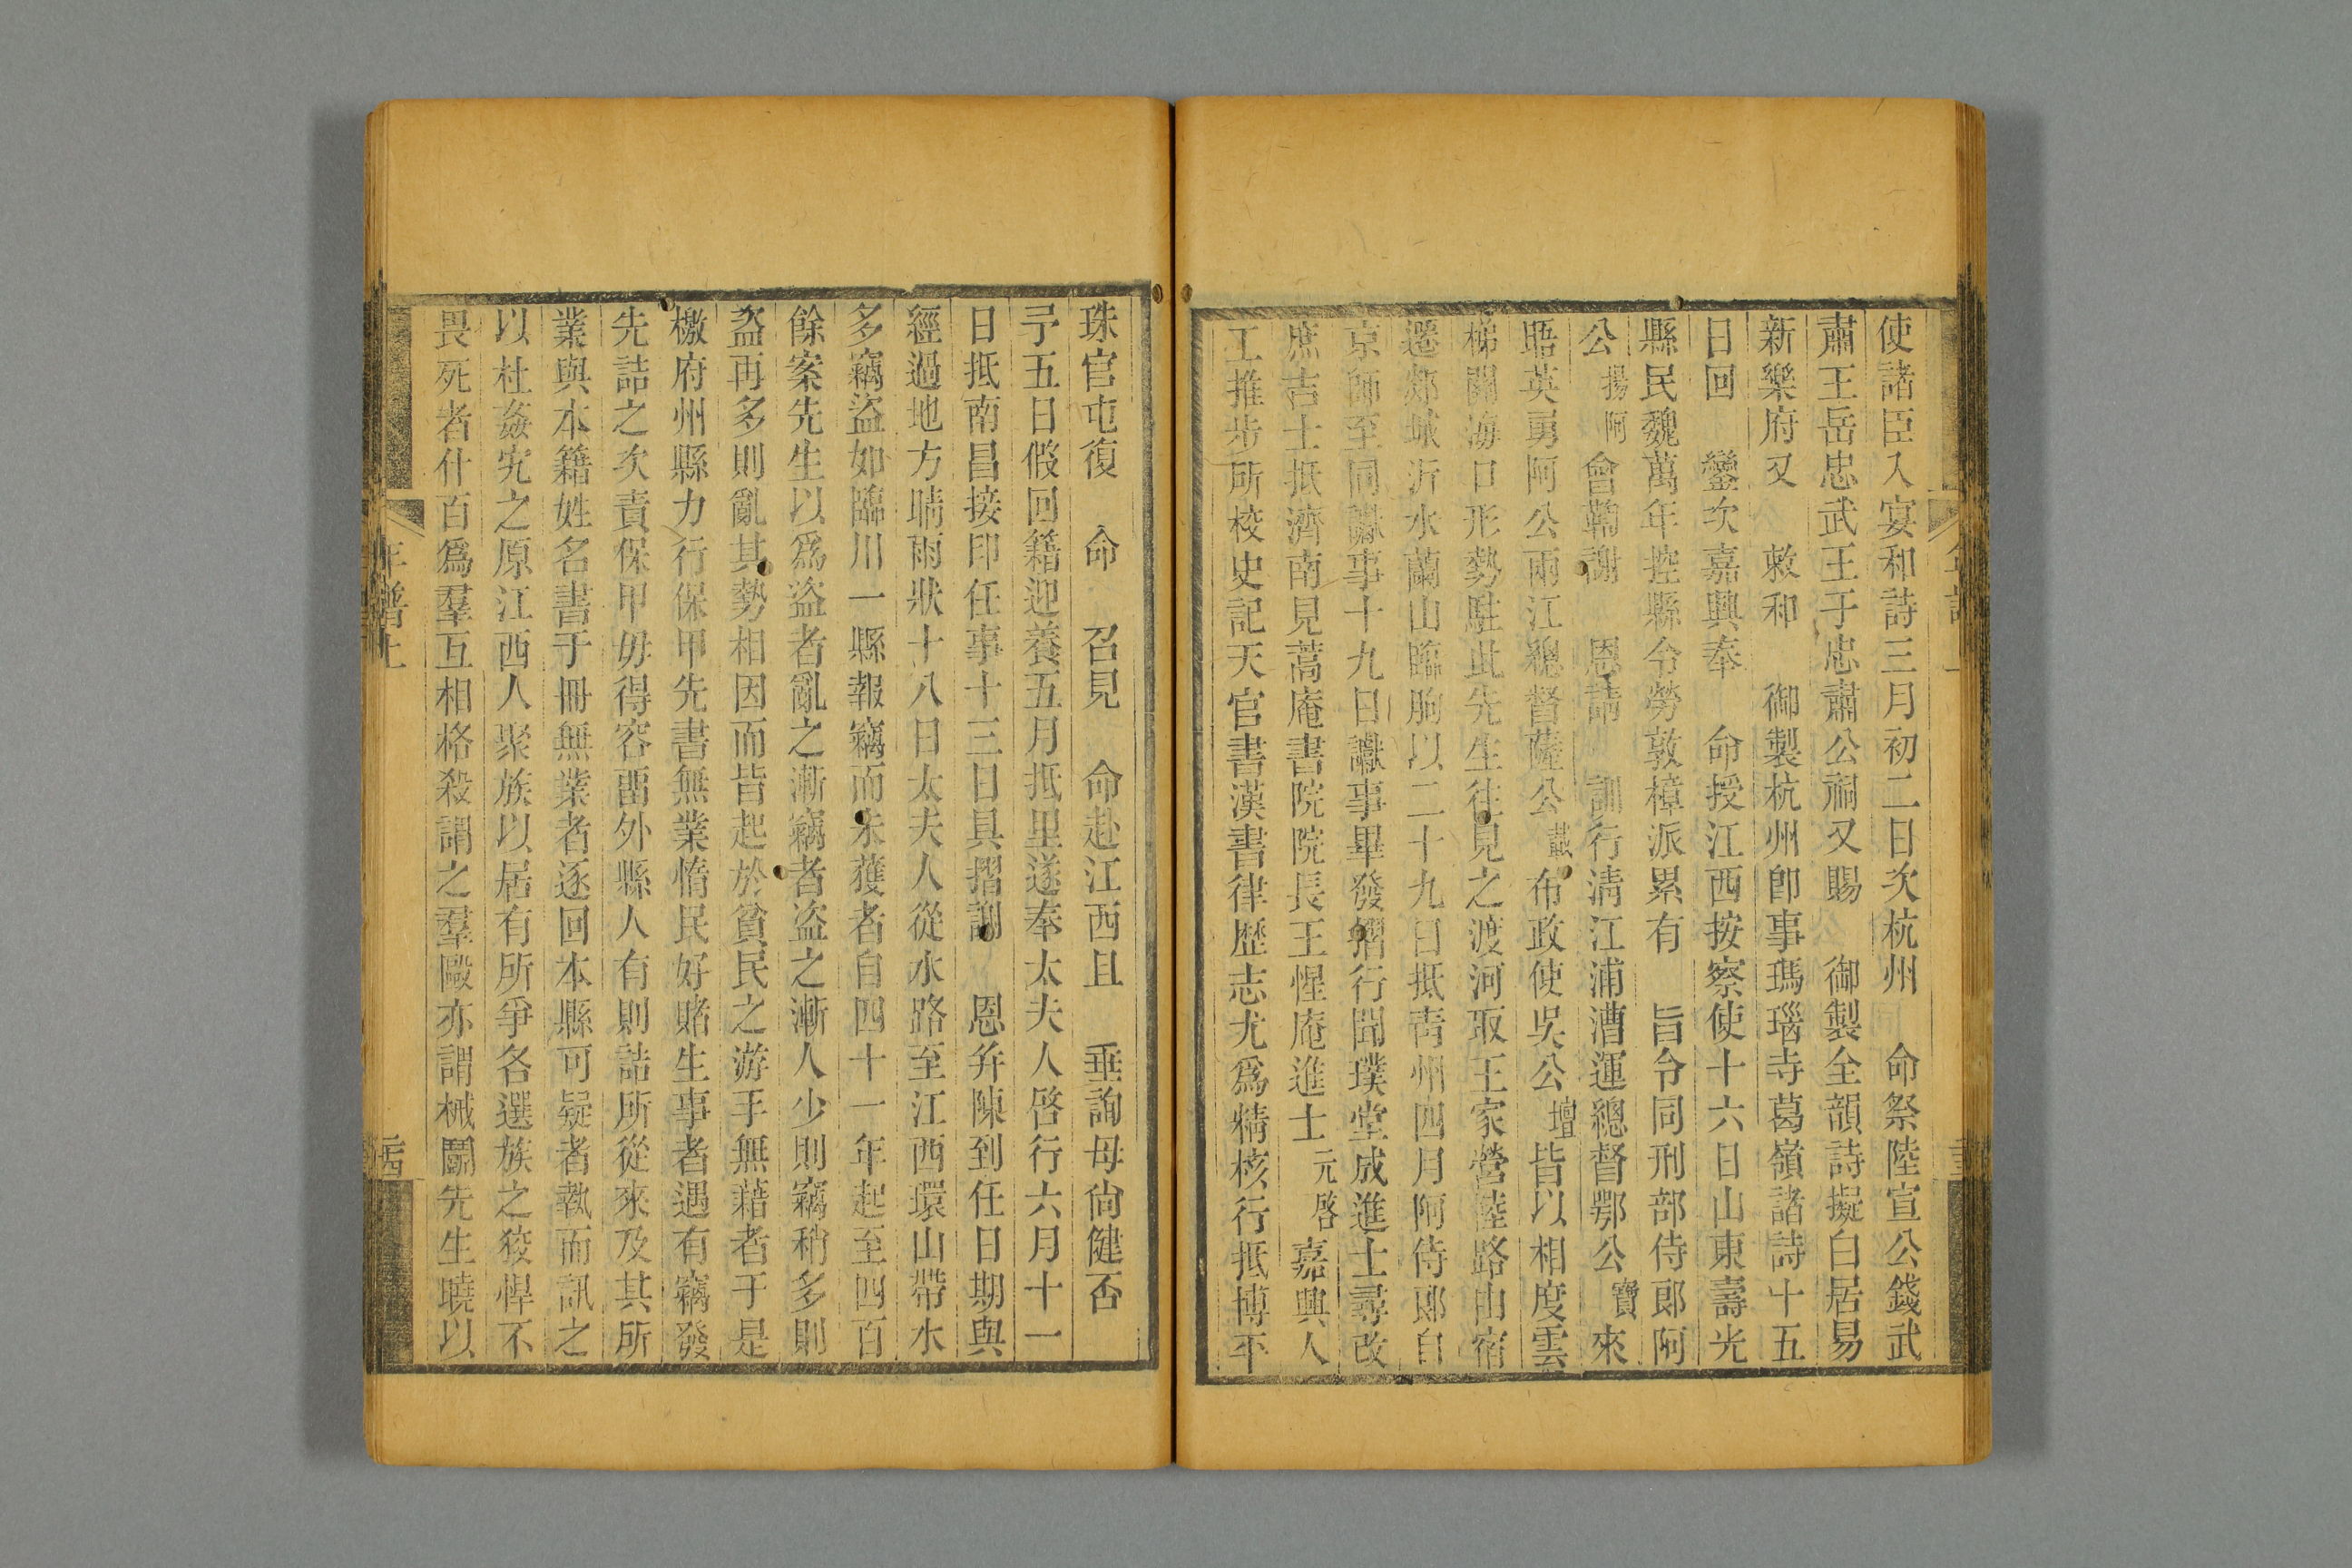 使諸臣入宴和詩三月初二日次杭州　命祭陸宣公錢武
肅王岳忠武王于忠肅公祠又賜　御製全韻詩擬白居易
新樂府又　敕和　御製杭州卽事瑪瑙寺葛嶺諸詩十五
日回　鑾次嘉興奉　命授江西按察使十六日山東壽光
縣民魏萬年控縣令勞敦樟派累有　旨令同刑部侍郎阿
公揚阿會鞫謝　恩請　訓行清江浦漕運總督鄂公寶來
晤英勇阿公兩江總督薩公載布政使吳公壇皆以相度雲
梯關海口形勢駐此先生往見之渡河取王家營陸路由宿
遷郯城沂水蘭山臨朐以二十九日抵青州四月阿侍郎自
京師至同讞事十九日讞事畢發摺行聞璞堂成進士尋改
庶吉士抵濟南見蒿庵書院院長王惺庵進士元啓嘉興人
工推步所校史記天官書漢書律歷志尤爲精核行抵博平
年譜上
珠官屯復　命　召見　命赴江西且　垂詢母尙健否
予五日假回籍迎養五月抵里遂奉太夫人啓行六月十一
日抵南昌接印任事十三日具摺謝　恩幷陳到任日期與
經過地方晴雨狀十八日太夫人從水路至江西環山帶水
多竊盜如臨川一縣報竊而未獲者自四十一年起至四百
餘案先生以爲盜者亂之漸竊者盜之漸人少則竊稍多則
盜再多則亂其勢相因而皆起於貧民之游手無藉者于是
檄府州縣力行保甲先書無業惰民好賭生事者遇有竊發
先詰之次責保甲毋得容畱外縣人有則詰所從來及其所
業與本籍姓名書于冊無業者逐回本縣可疑者執而訊之
以杜姦宄之原江西人聚族以居有所爭各選族之狡悍不
畏死者什百爲羣互相格殺謂之羣毆亦謂械鬭先生曉以
年譜上